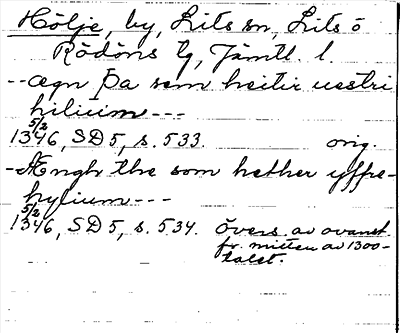 Hölje, by, Lits sn, Lits o
Rödöns tg, Jämtl. l.
-- ægn þa sem heitir uestri
hilium ---
5/2
1346, SD 5, s. 533. orig.
- Ængh the som hether yffre-
hylium ---
5/2
1346, SD 5, s. 534. övers. av ovanst.
fr. mitten av 1300-
talet.